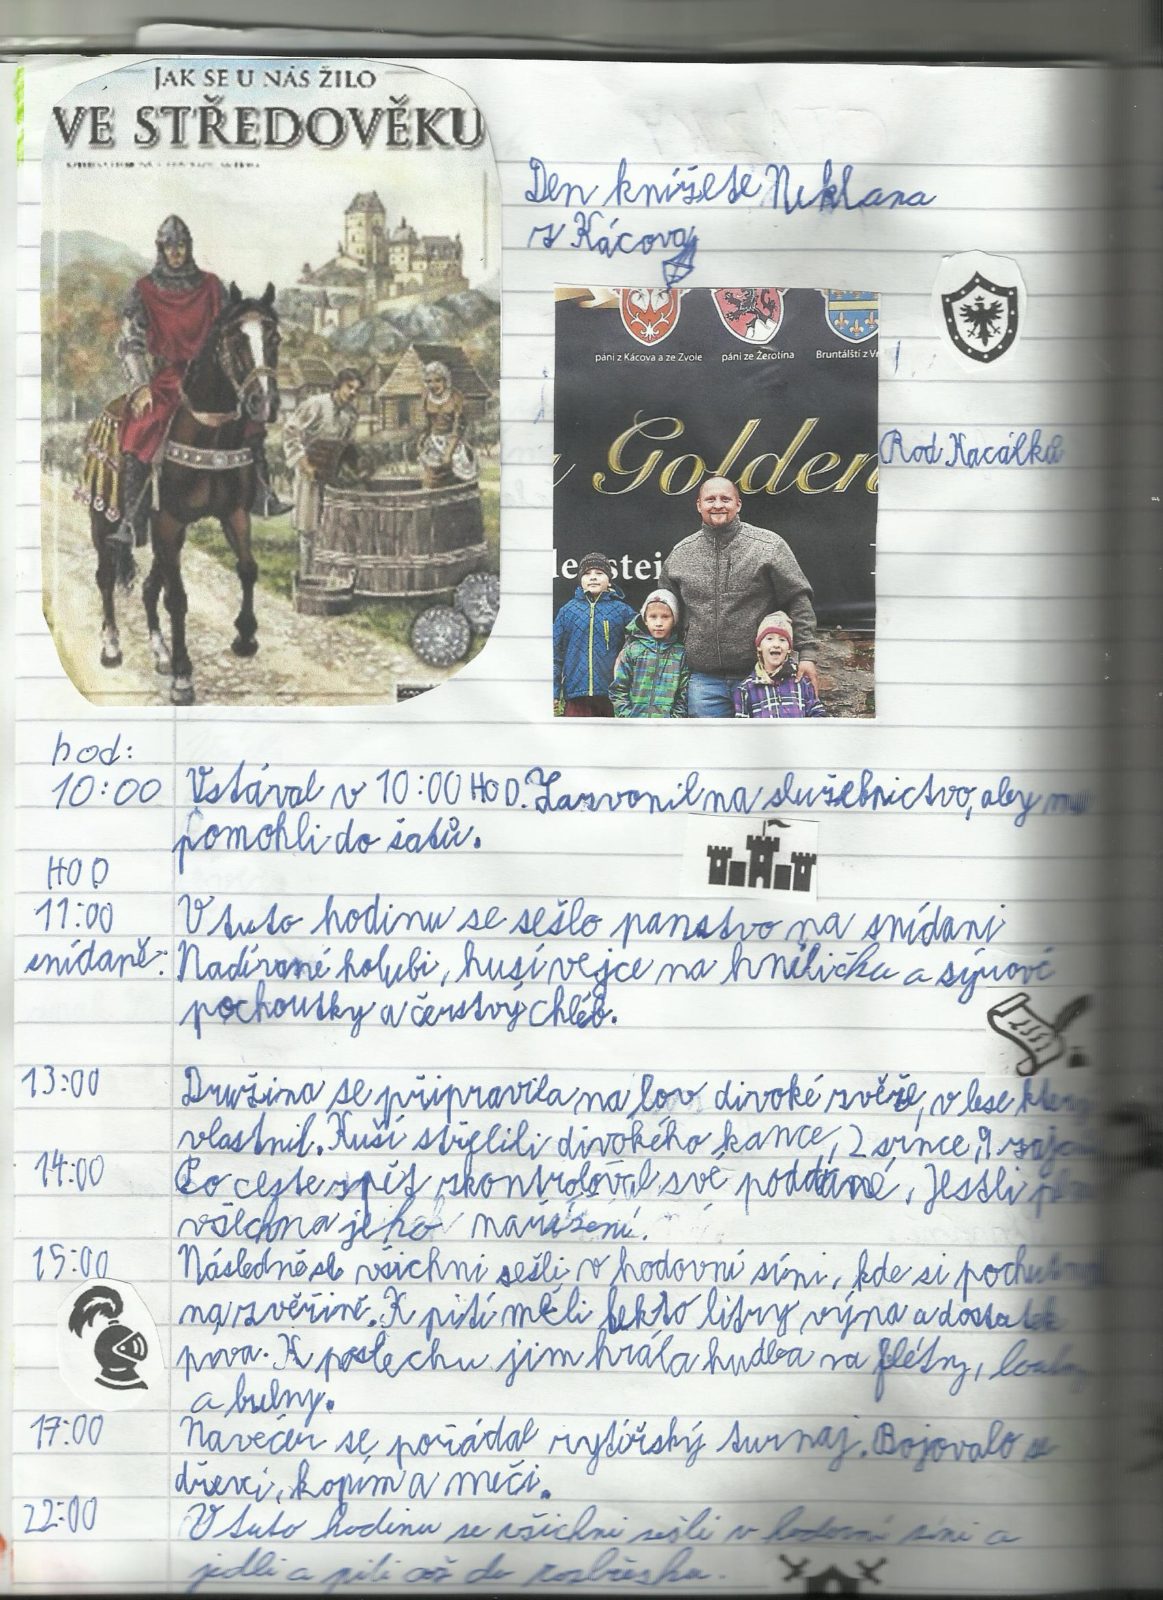 JAK SE U NÁS ŽILO
VE STŘEDOVĚKU
Den knížete Neklana
z Kácova
páni z Kácova a ze Zvole
páni ze Žerotína
Bruntálští z Vr
Golden
Rod Kacálka
hod:
10:00 Vstával v 10:00 HOD. Zazvonil na služebnictvo, aby mu
pomohli do šatů.
HOD
11:00 V tuto hodinu se sešlo panstvo na snídani
snídaně: Nadívané holubi, husí vejce na hniličku a sýrové
pochoutky a čerstvý chléb.
13:00 Družina se připravila na lov divoké zvěře, v lese
vlastnil. Kuší střelili divokého kance, 2 srnce, 9
14:00 Po ceste zpět zkontroloval své poddané, Jestli
všechna jeho nařízení.
15:00 Následně se všichni sešli v hodovní síni, kde si
na zvěřině. K pití měli hekto litry výna a dostatek
pova. K poslechu jim hrála hudba na flétny,
a bubny.
17:00 Navečer se pořádal rytířský turnaj. Bojovalo se
dřevci, kopím a meči.
22:00 V tuto hodinu se všichni sešli v hodovní síni a
jedli a pili až do rozbřesku.